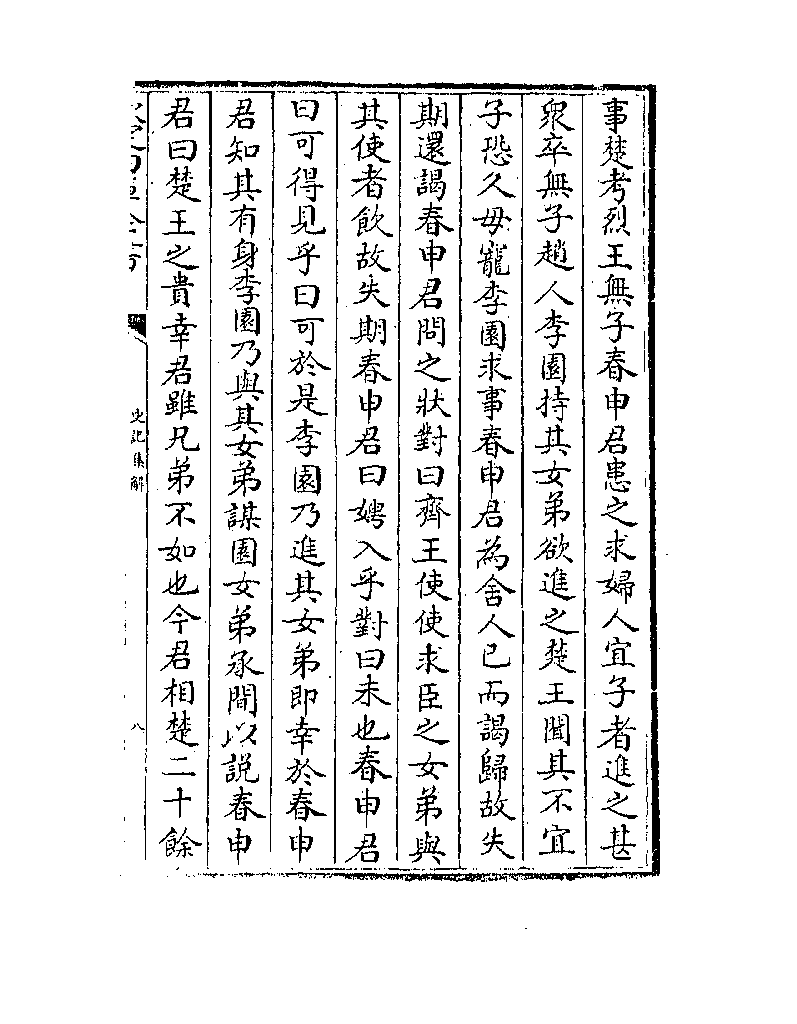 事楚考烈王無子春申君患之求婦人宜子者進之甚
衆卒無子趙人李園持其女弟欲進之楚王聞其不宜
子恐久毋寵李園求事春申君為舍人已而謁歸故失
期還謁春申君問之狀對曰齊王使使求臣之女弟與
其使者飲故失期春申君曰娉入乎對曰未也春申君
曰可得見乎曰可於是李園乃進其女弟即幸於春申
君知其有身李園乃與其女弟謀園女弟承間以説春申
君曰楚王之貴幸君雖兄弟不如也今君相楚二十餘
史記集解
八